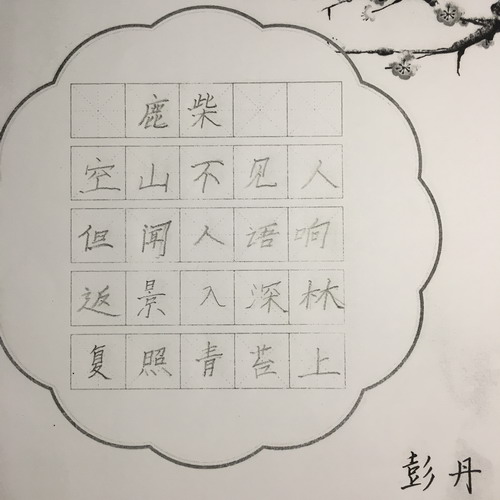 鹿柴
空山不见人
但闻人语响
返景入深林
复照青苔上
彭丹